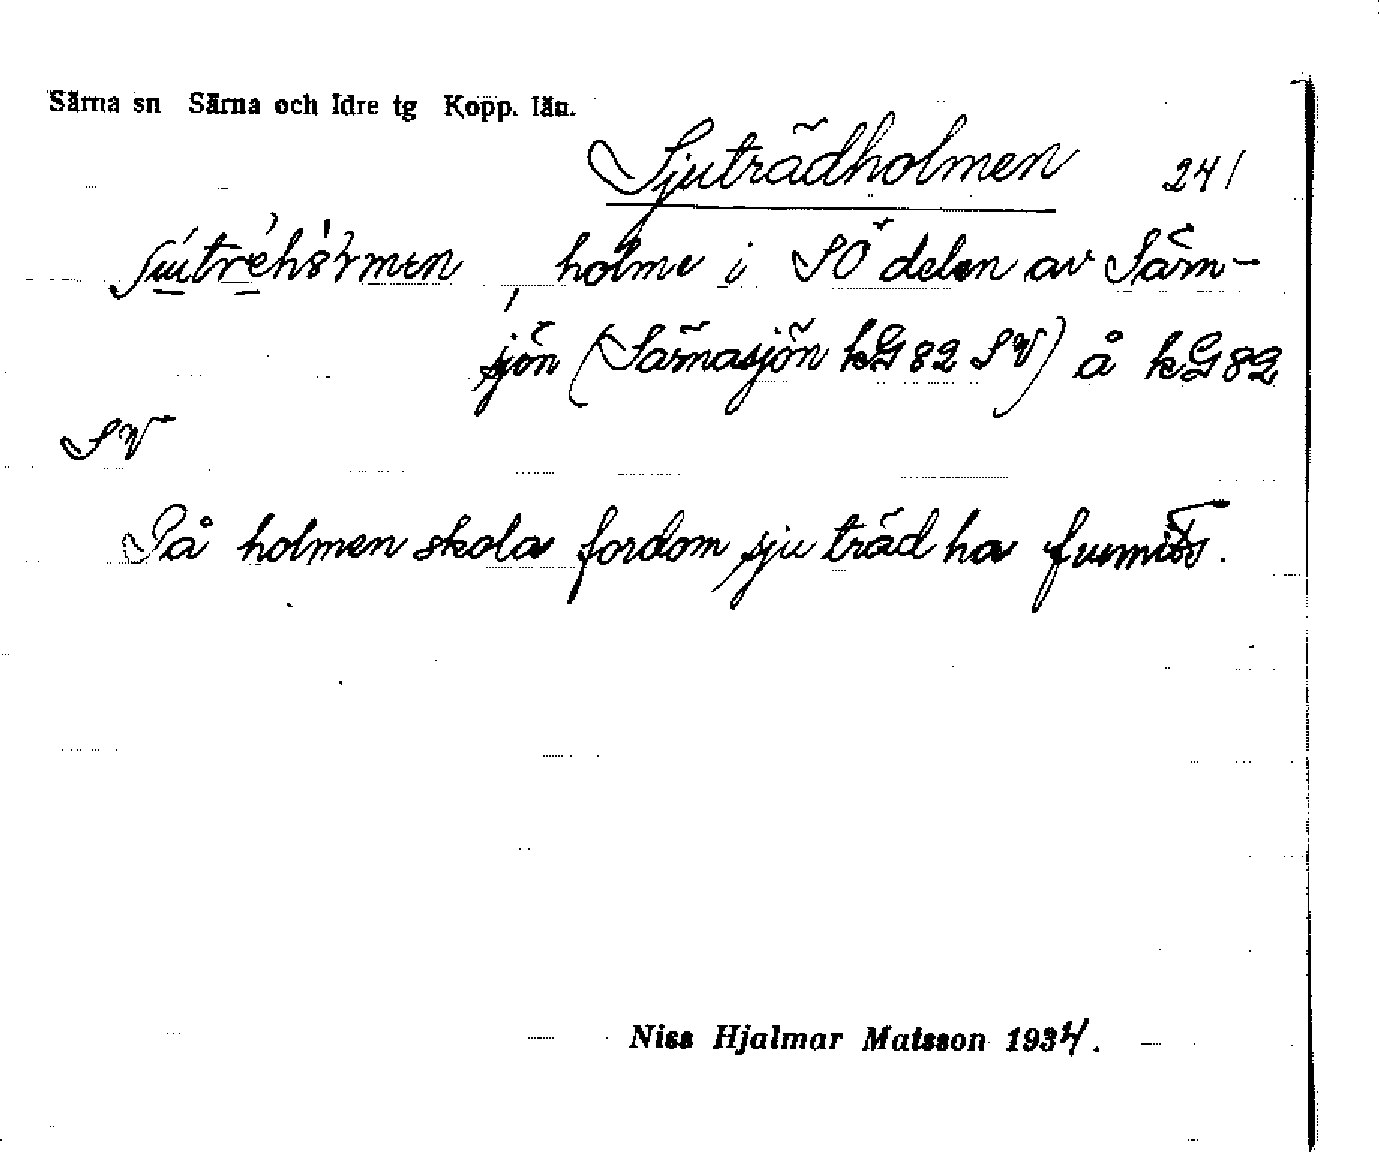 Särna sn Särna och Idre tg Kopp. län.
Sjuträdholmen 241
holme i SÖ delen av Särn-
sjön (Särnasjön kG82 SV) å kG82
SV
På holmen skola fordom sju träd ha funnits.
Niss Hjalmar Matsson 1934.